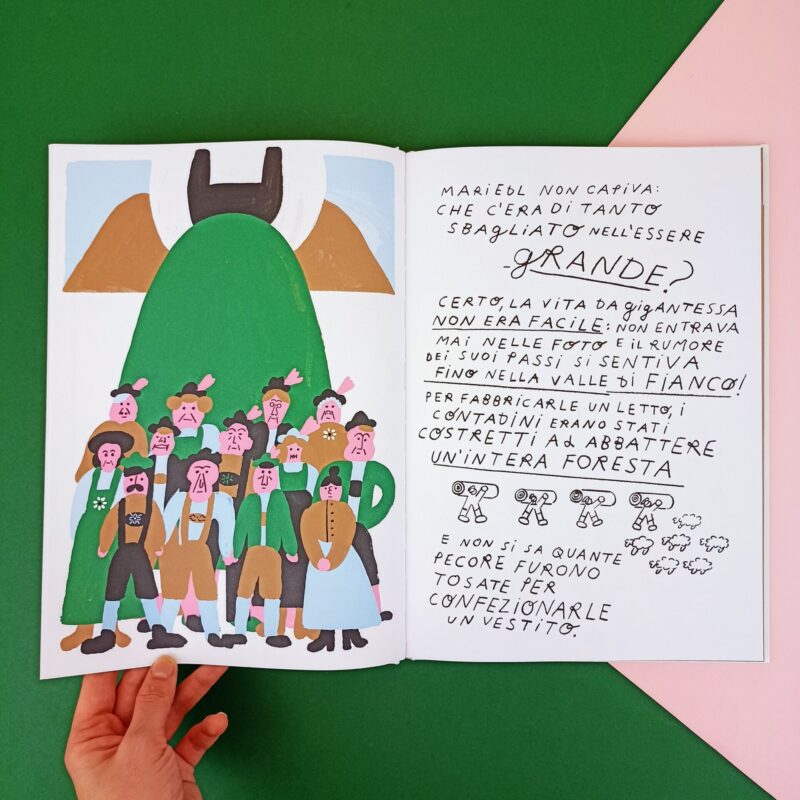 MARIEDL NON CAPIVA:
CHE C'ERA DI TANTO
SBAGLIATO NELL'ESSERE
GRANDE?
CERTO, LA VITA DA GIGANTESSA
NON ERA FACILE: NON ENTRAVA
MAI NELLE FOTO E IL RUMORE
DEI SUOI PASSI SI SENTIVA
FINO NELLA VALLE DI FIANCO!
PER FABBRICARLE UN LETTO, I
CONTADINI ERANO STATI
COSTRETTI AD ABBATTERE
UN'INTERA FORESTA
E NON SI SA QUANTE
PECORE FURONO
TOSATE PER
CONFEZIONARLE
UN VESTITO.